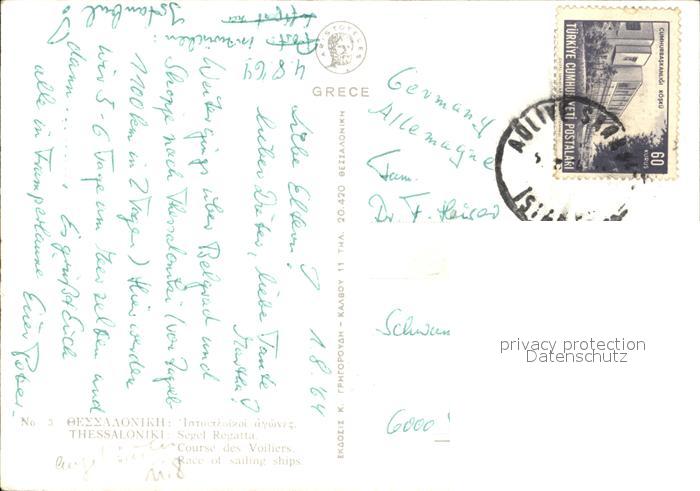 1.8.64
Liebe Eltern!
lieber Dieter, liebe Tante
Martha!
Weiter gings über Belgrad und
Skopje nach Thessaloniki (von Zagreb
1100 km in 2 Tagen) Hier werden
wir 5-6 Tage am Meer zelten und
dann
Es grüßt Euch
alle in Tramperlaune Euer Peter.
4.8.64
inzwischen
Istanbul
GRECE
Germany
Allemagne
Fam.
Dr. F.
Schwan
6000!
TÜRKİYE CUMHURİYETİ POSTALARI
CUMHURBAŞKANLIĞI KÖŞKÜ
60
KURUŞ
ΕΚΔΟΣΙΣ Κ. ΓΡΗΓΟΡΟΥΔΗ - ΚΑΛΒΟΥ 11 ΤΗΛ. 20.420 ΘΕΣΣΑΛΟΝΙΚΗ
No 3 ΘΕΣΣΑΛΟΝΙΚΗ: Ἱστιοπλοϊκοὶ ἀγῶνες.
THESSALONIKI: Segel Regatta.
Course des Voiliers.
Race of sailing ships
privacy protection
Datenschutz